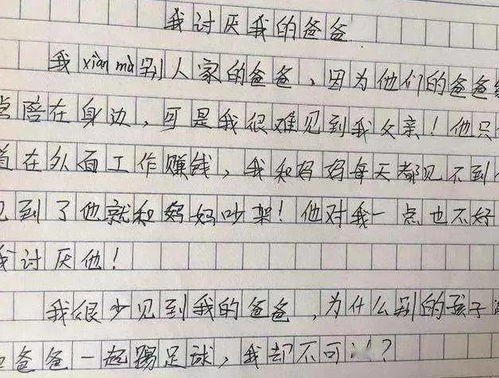 我讨厌我的爸爸
我xiàn mù别人家的爸爸，因为他们的爸爸
陪在身边，可是我很难见到我父亲！他只
着在外面工作赚钱，我和妈妈每天都见不到
见到了他就和妈妈吵架！他对我一点也不好
我讨厌他！
我很少见到我的爸爸，为什么别的孩子
和爸爸一起踢足球，我却不可以？